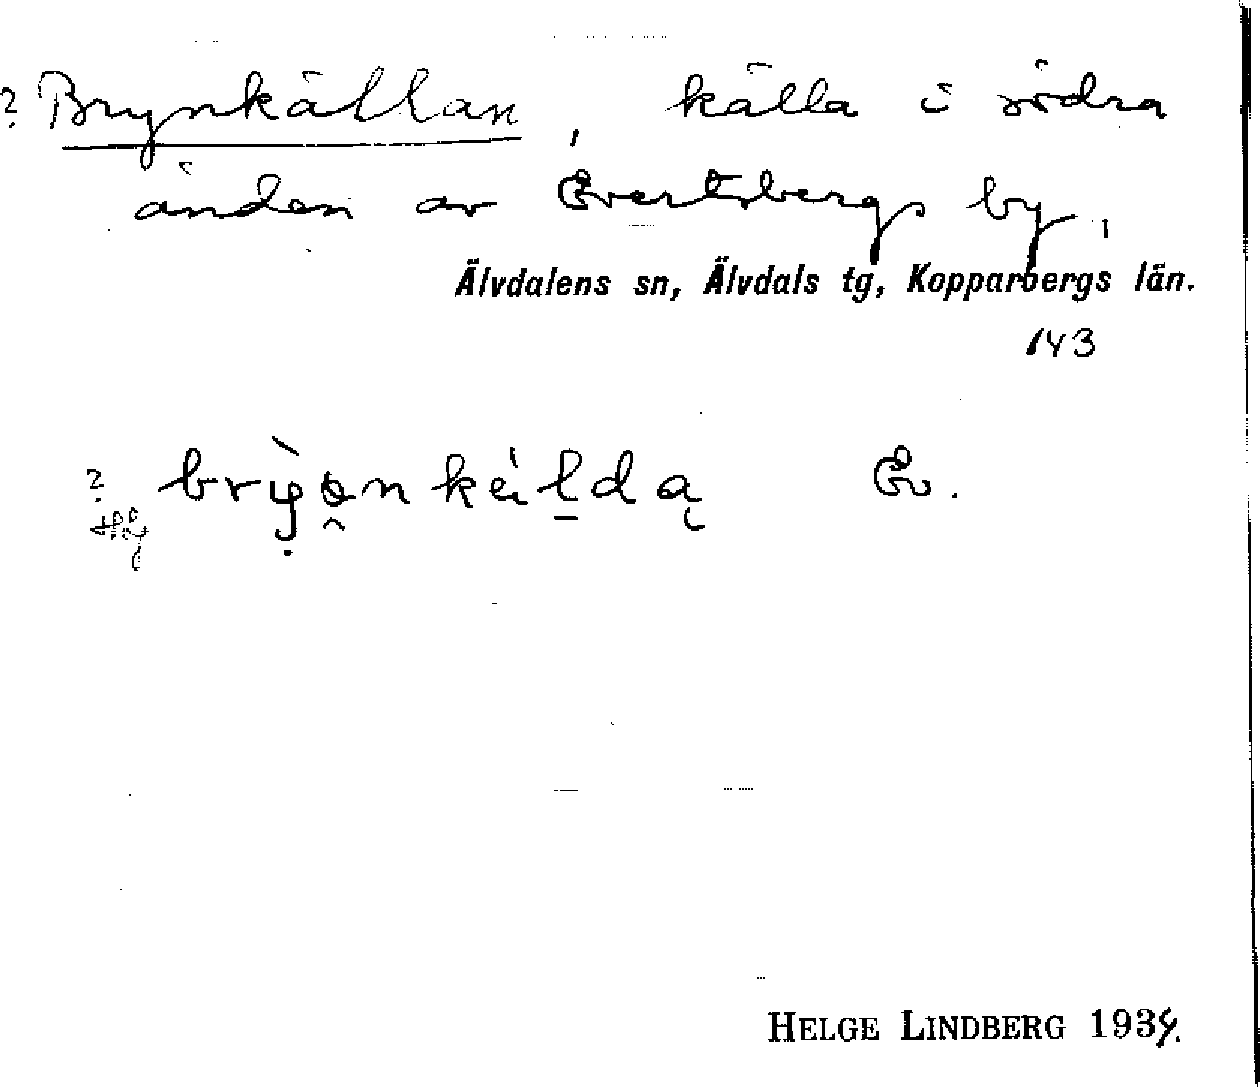 ? Brynkällan, källa i södra
änden av Evertsbergs by,
Älvdalens sn, Älvdals tg, Kopparbergs län.
143
? Ev.
HELGE LINDBERG 1934.